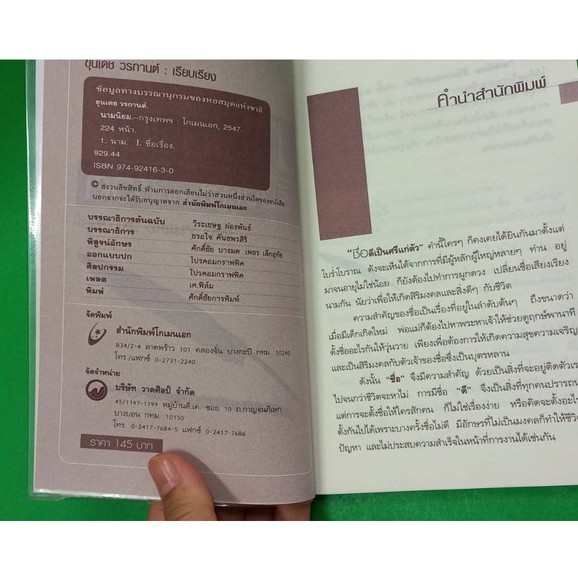 ขุนเดช วรกานต์ : เรียบเรียง
ข้อมูลทางบรรณานุกรมของหอสมุดแห่งชาติ
ขุนเดช วรกานต์.
นามนิยม.--กรุงเทพฯ : โกเมนเอก, 2547.
224 หน้า.
1. นาม. I. ชื่อเรื่อง.
929.44
ISBN 974-92416-3-0
© สงวนลิขสิทธิ์ ห้ามการลอกเลียนไม่ว่าส่วนหนึ่งส่วนใดของหนังสือ
นอกจากจะได้รับอนุญาตจาก สำนักพิมพ์โกเมนเอก
บรรณาธิการต้นฉบับ วีระเชษฐ ผ่องพันธ์
บรรณาธิการ ขรอโจ คันธพรสิริ
พิสูจน์อักษร ศักดิ์ชัย บางมด เพชร เด็กอุทัย
ออกแบบปก โปรคอมกราฟฟิค
ศิลปกรรม โปรคอมกราฟฟิค
เพลต เค.ฟิล์ม
พิมพ์ ศักดิ์ชัยการพิมพ์
จัดพิมพ์
สำนักพิมพ์โกเมนเอก
834/2-4 ลาดพร้าว 101 คลองจั่น บางกะปิ กทม. 10240
โทร./แฟกซ์ 0-2731-2240
จัดจำหน่าย
บริษัท วาดศิลป์ จำกัด
45/1197-1199 หมู่บ้านดี.เค. ซอย 10 ถ.กาญจนาภิเษก
บางบอน กทม. 10150
โทร. 0-2417-7684-5 แฟกซ์ 0-2417-7686
ราคา 145 บาท
คำนำสำนักพิมพ์
"ชื่อดีเป็นศรีแก่ตัว" คำนี้ใครๆ ก็คงเคยได้ยินกันมาตั้งแต่
โบร่ำโบราณ ดังจะเห็นได้จากการที่มีผู้หลักผู้ใหญ่หลายๆ ท่าน อยู่
มาจนอายุไม่ใช่น้อย ก็ยังต้องไปทำการผูกดวง เปลี่ยนชื่อเสียงเรียง
นามกัน นัยว่าเพื่อให้เกิดสิริมงคลและสิ่งดีๆ กับชีวิต
ความสำคัญของชื่อเป็นเรื่องที่อยู่ในลำดับต้นๆ ถึงขนาดว่า
เมื่อมีเด็กเกิดใหม่ พ่อแม่ก็ต้องไปหาพระหาเจ้าให้ช่วยดูฤกษ์พานาที
ตั้งชื่ออะไรกันให้วุ่นวาย เพียงเพื่อต้องการให้เกิดความสุขความเจริญ
และเป็นสิริมงคลกับตัวเจ้าของชื่อซึ่งเป็นบุตรหลาน
ดังนั้น "ชื่อ" จึงมีความสำคัญ ด้วยเป็นสิ่งที่จะอยู่ติดตัวเรา
ไปจนกว่าชีวิตจะหาไม่ การมีชื่อ "ดี" จึงเป็นสิ่งที่ทุกคนปรารถนา
แต่การจะตั้งชื่อให้ใครสักคน ก็ไม่ใช่เรื่องง่าย หรือคิดจะตั้งอะไร
ตั้งกันไปได้เพราะบางครั้งชื่อไม่ดี มีอักษรที่ไม่เป็นมงคลก็ทำให้ชีวิต
ปัญหา และไม่ประสบความสำเร็จในหน้าที่การงานได้เช่นกัน